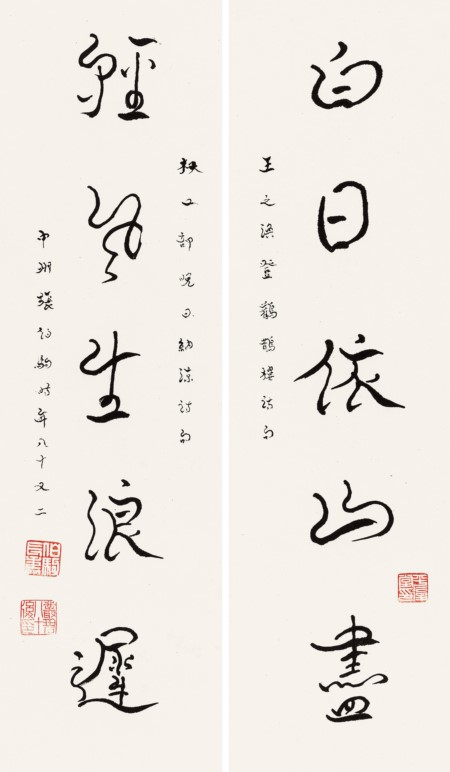 白日依山盡
王之渙登鸛鵲樓詩句
輕風生浪遲
杜工部晚納涼詩句
中州張伯駒時年八十又二